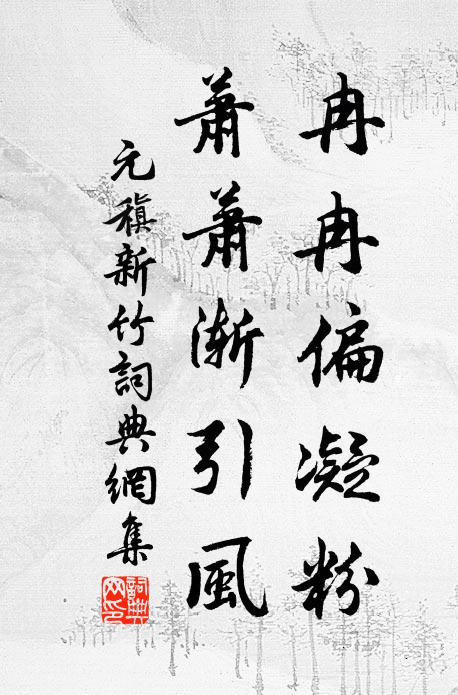 冉冉偏凝粉
蕭蕭漸引風
元稹新竹詞典網集
詞典